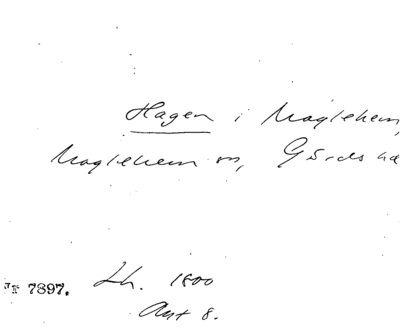 Hagen i Maglehem,
Maglehem sn, Gärds hä
JF 7897. Lh. 1800
Akt 8.